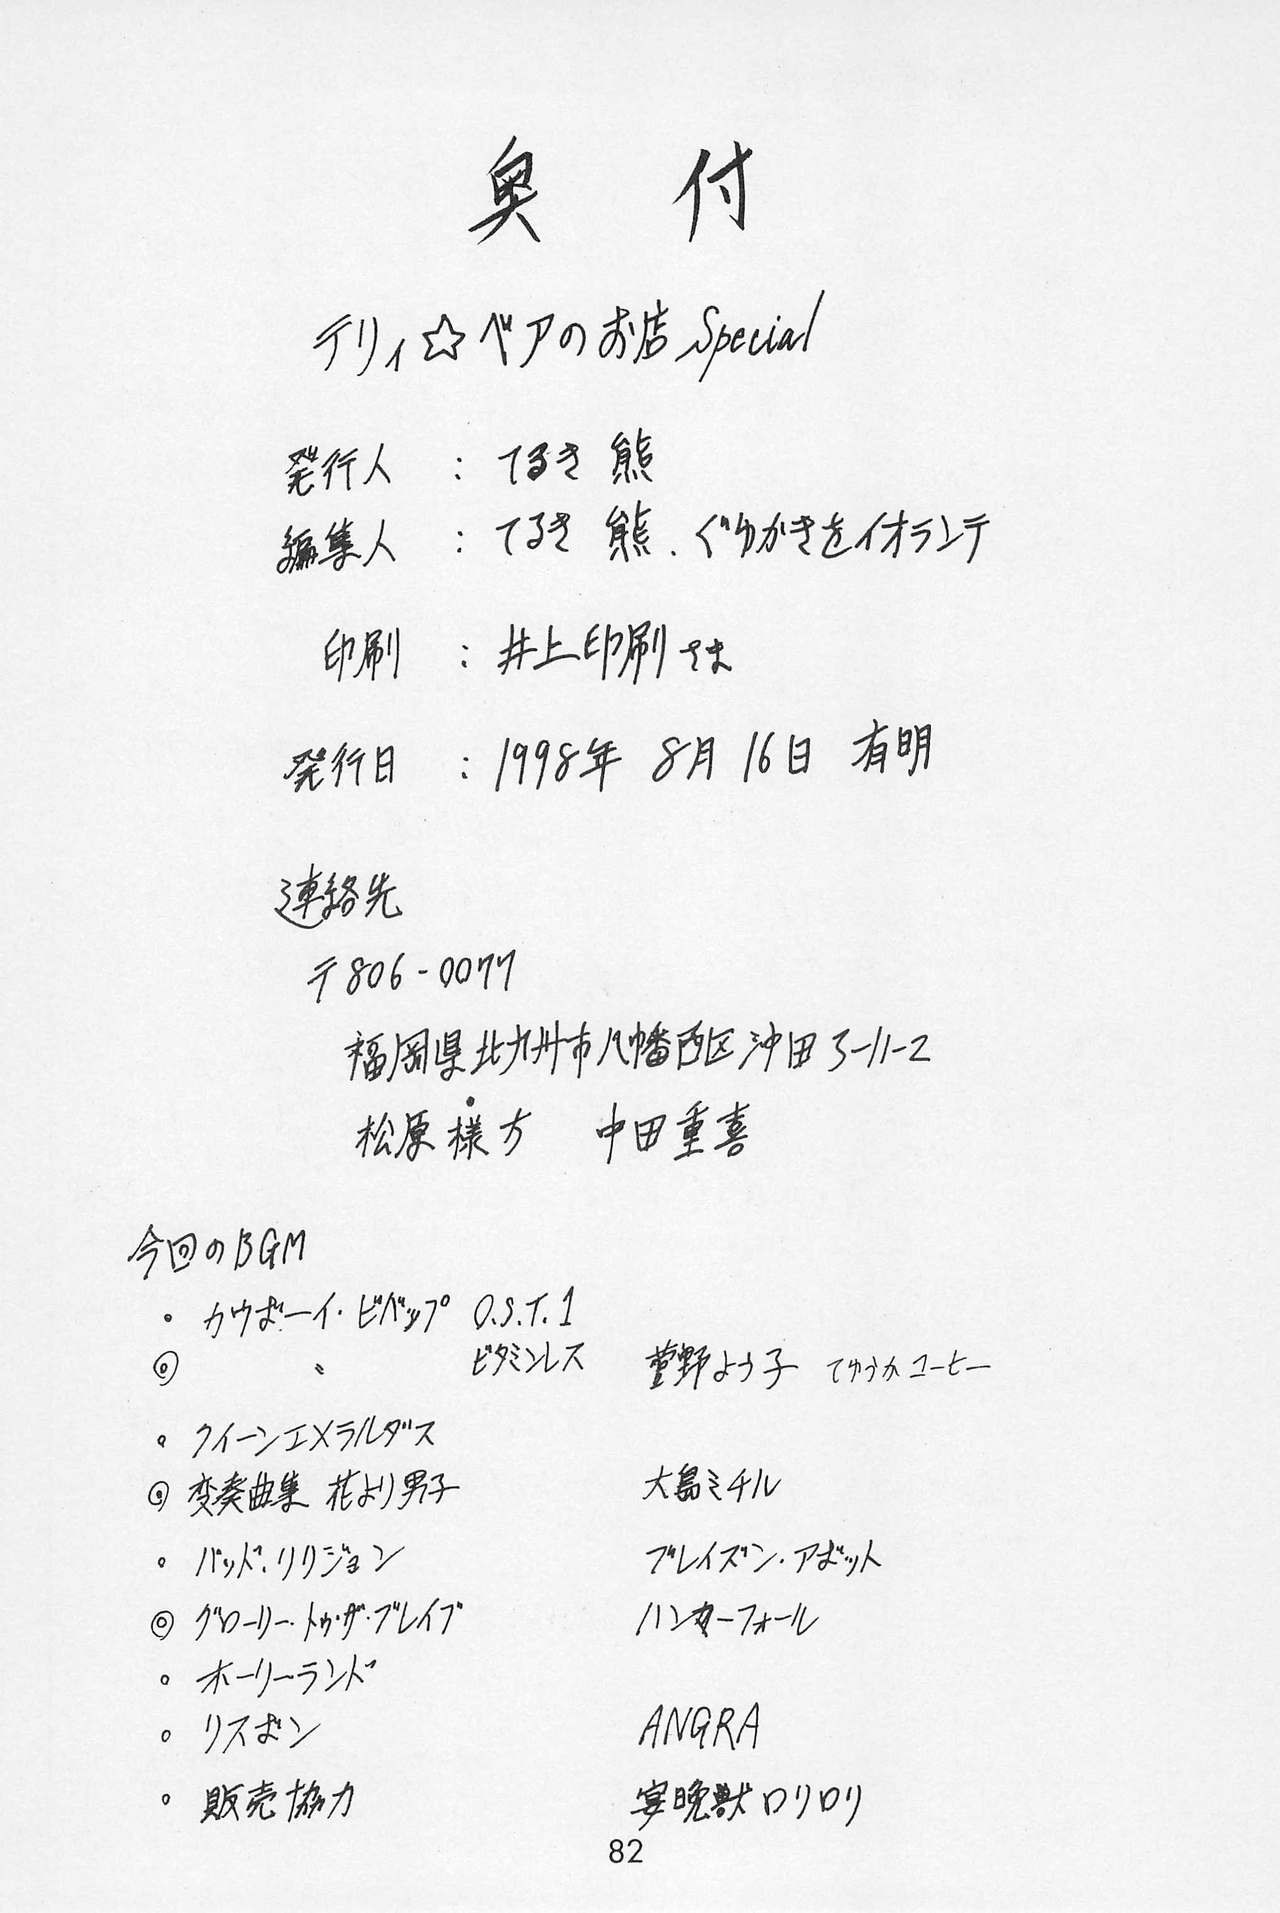 奥付
テリィ☆ベアのお店 Special
発行人 : てるき熊
編集人 : てるき熊、ぐゆかきをイオランテ
印刷 : 井上印刷さま
発行日 : 1998年 8月 16日 有明
連絡先
〒806-0077
福岡県北九州市八幡西区沖田3-11-2
松原様方 中田重喜
今回のBGM
・カウボーイ・ビバップ O.S.T.1
◎ 〃 ビタミンレス 菅野よう子 てゆうかコーヒー
・クイーンエメラルダス
◎変奏曲集 花より男子 大島ミチル
・バッド・リリジョン ブレイズン・アボット
◎グローリー・トゥ・ザ・ブレイブ ハンマーフォール
・ホーリーランド
・リスボン ANGRA
・販売協力 宴晩獣ロリロリ
82